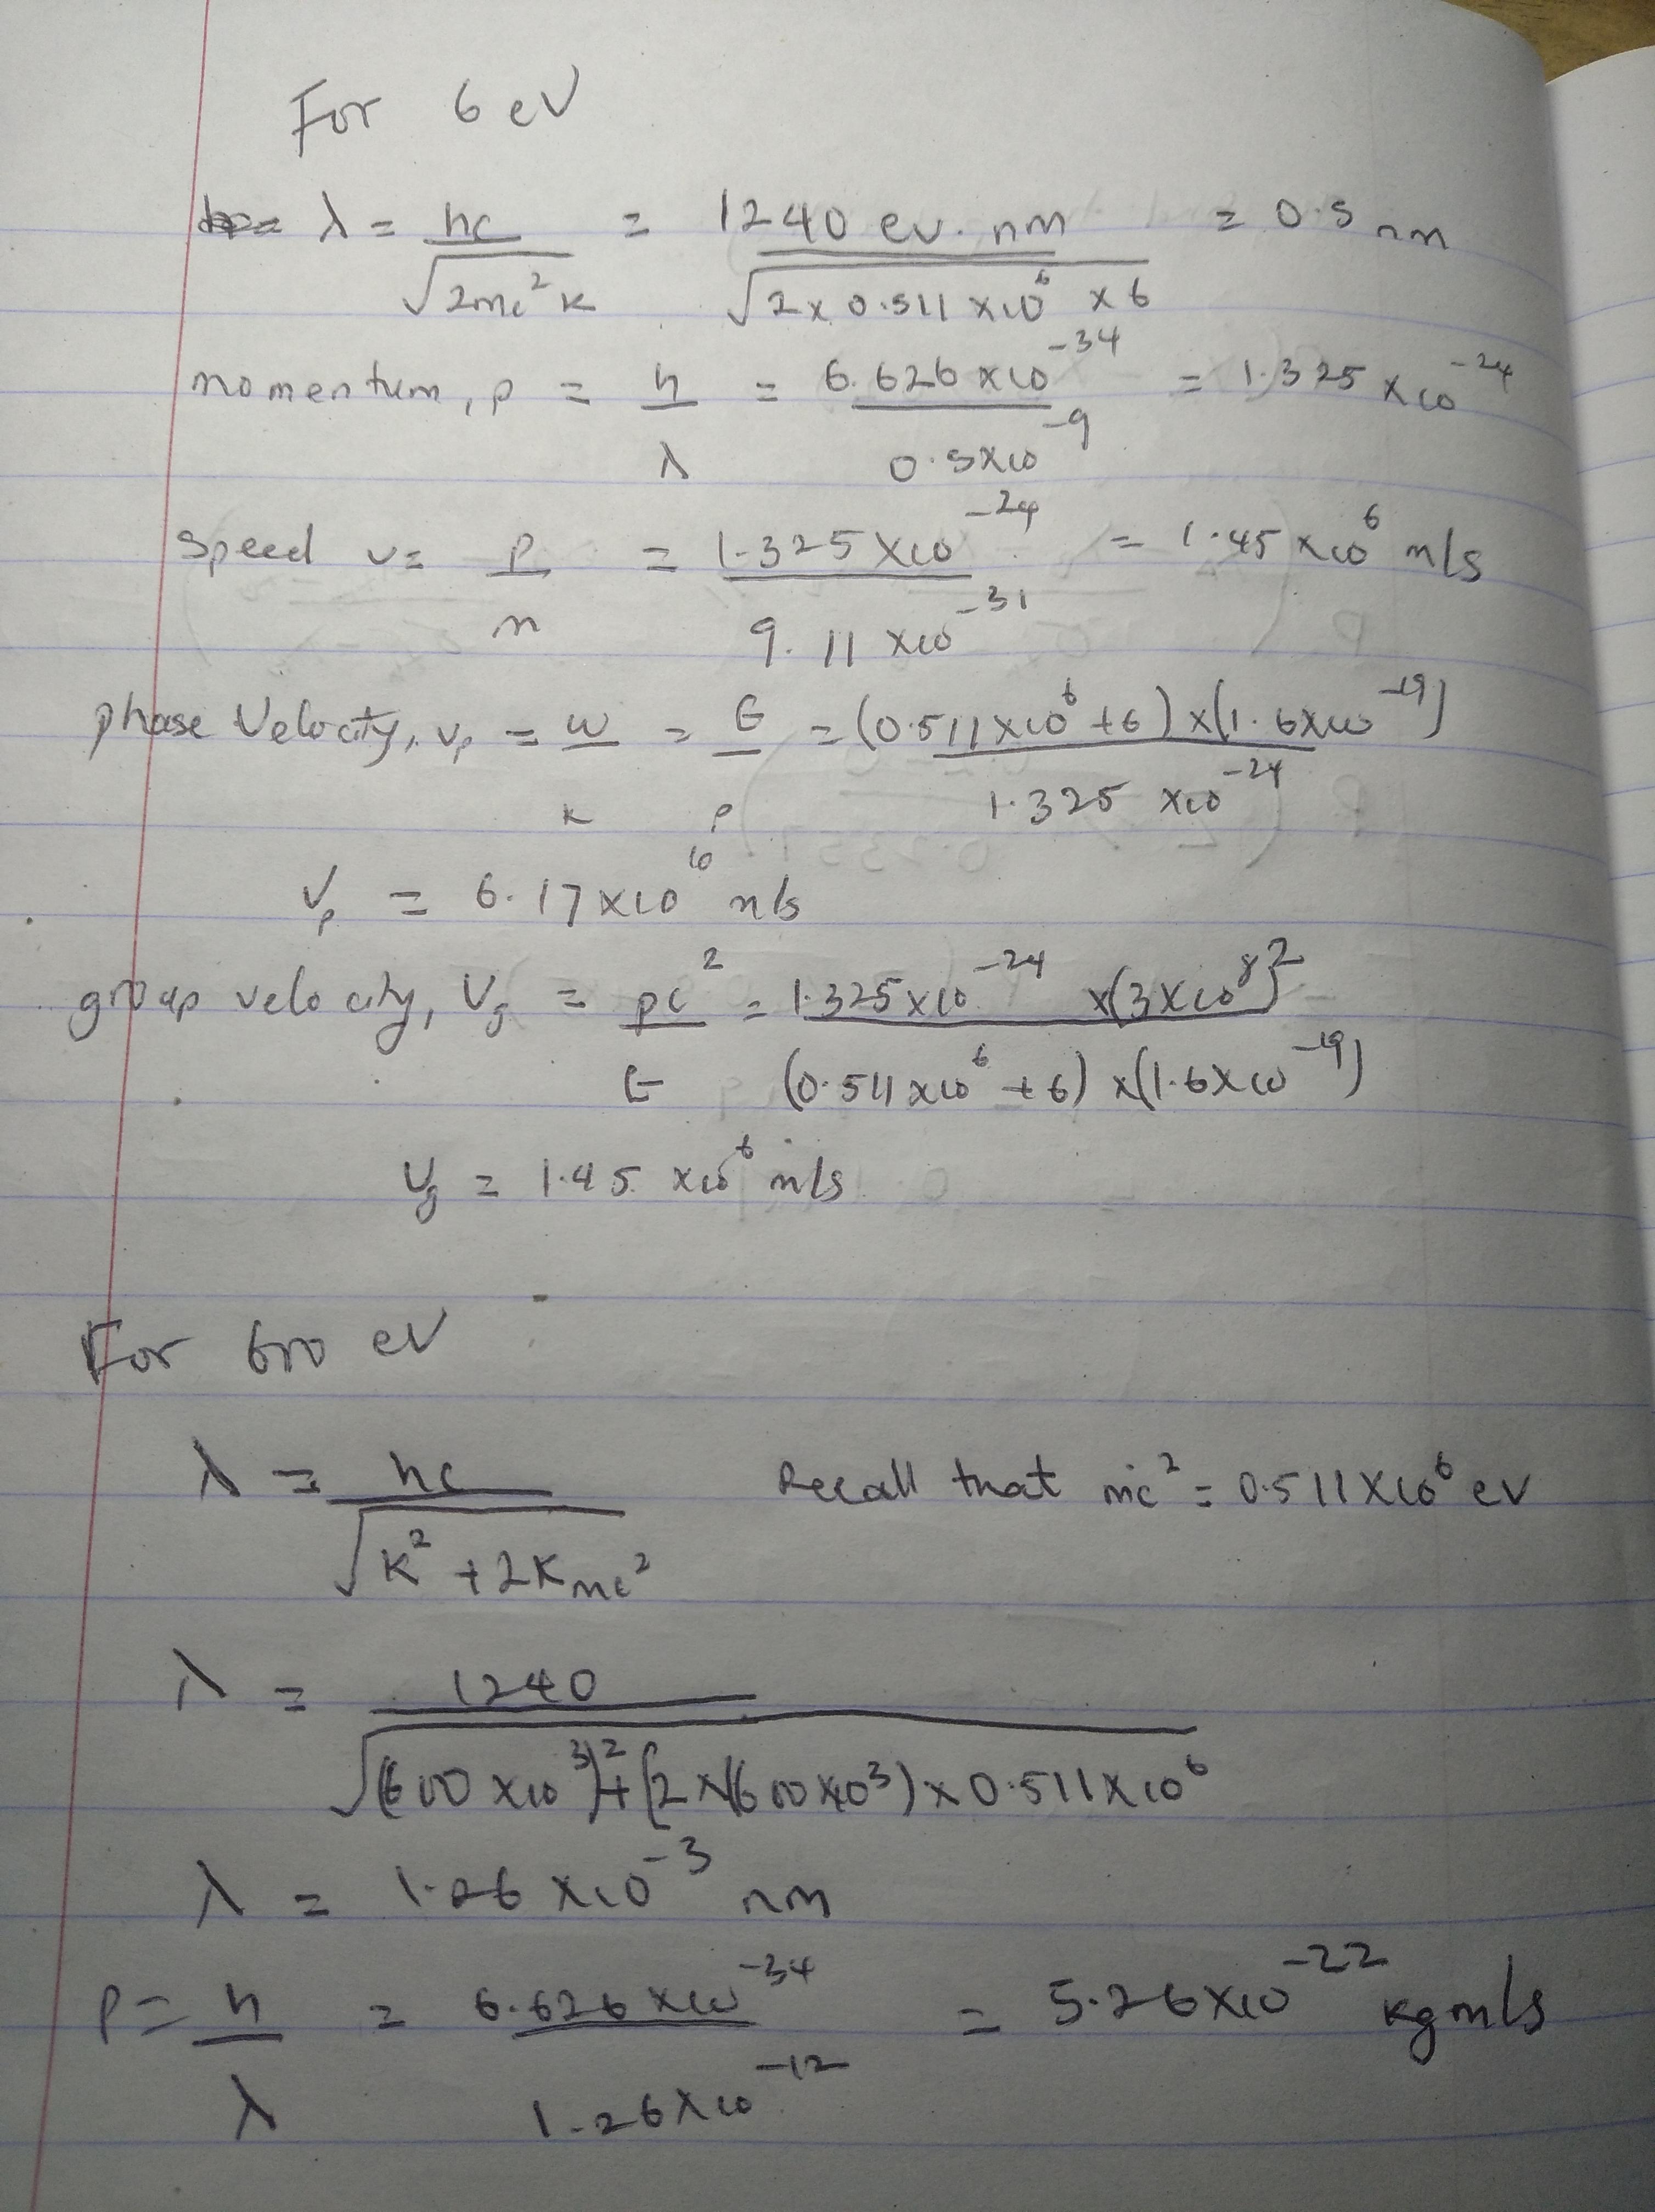 For 6 eV
λ = hc/√(2mc²K) = 1240 ev. nm/√(2 x 0.511 x10⁶ x 6) = 0.5 nm
momentum, p = h/λ = 6.626 x10⁻³⁴/0.5x10⁻⁹ = 1.325 x10⁻²⁴
Speed v = p/m = 1.325 x10⁻²⁴/9.11 x10⁻³¹ = 1.45 x10⁶ m/s
phase Velocity, vₚ = w/k = E/p = (0.511x10⁶ +6) x(1.6x10⁻¹⁹)/1.325 x10⁻²⁴
Vₚ = 6.17x10¹⁰ m/s
group velocity, Vg = pc²/E = 1.325x10⁻²⁴ x(3x10⁸)²/(0.511x10⁶ +6) x(1.6x10⁻¹⁹)
Vg = 1.45 x10⁶ m/s
For 600 eV
λ = hc/√(K² + 2Kmc²) Recall that mc² = 0.511x10⁶ ev
λ = 1240/√((600 x10³)² + (2 x(600x10³) x 0.511x10⁶
λ = 1.26 x10⁻³ nm
p = h/λ = 6.626 x10⁻³⁴/1.26x10⁻¹² = 5.26x10⁻²² kgm/s